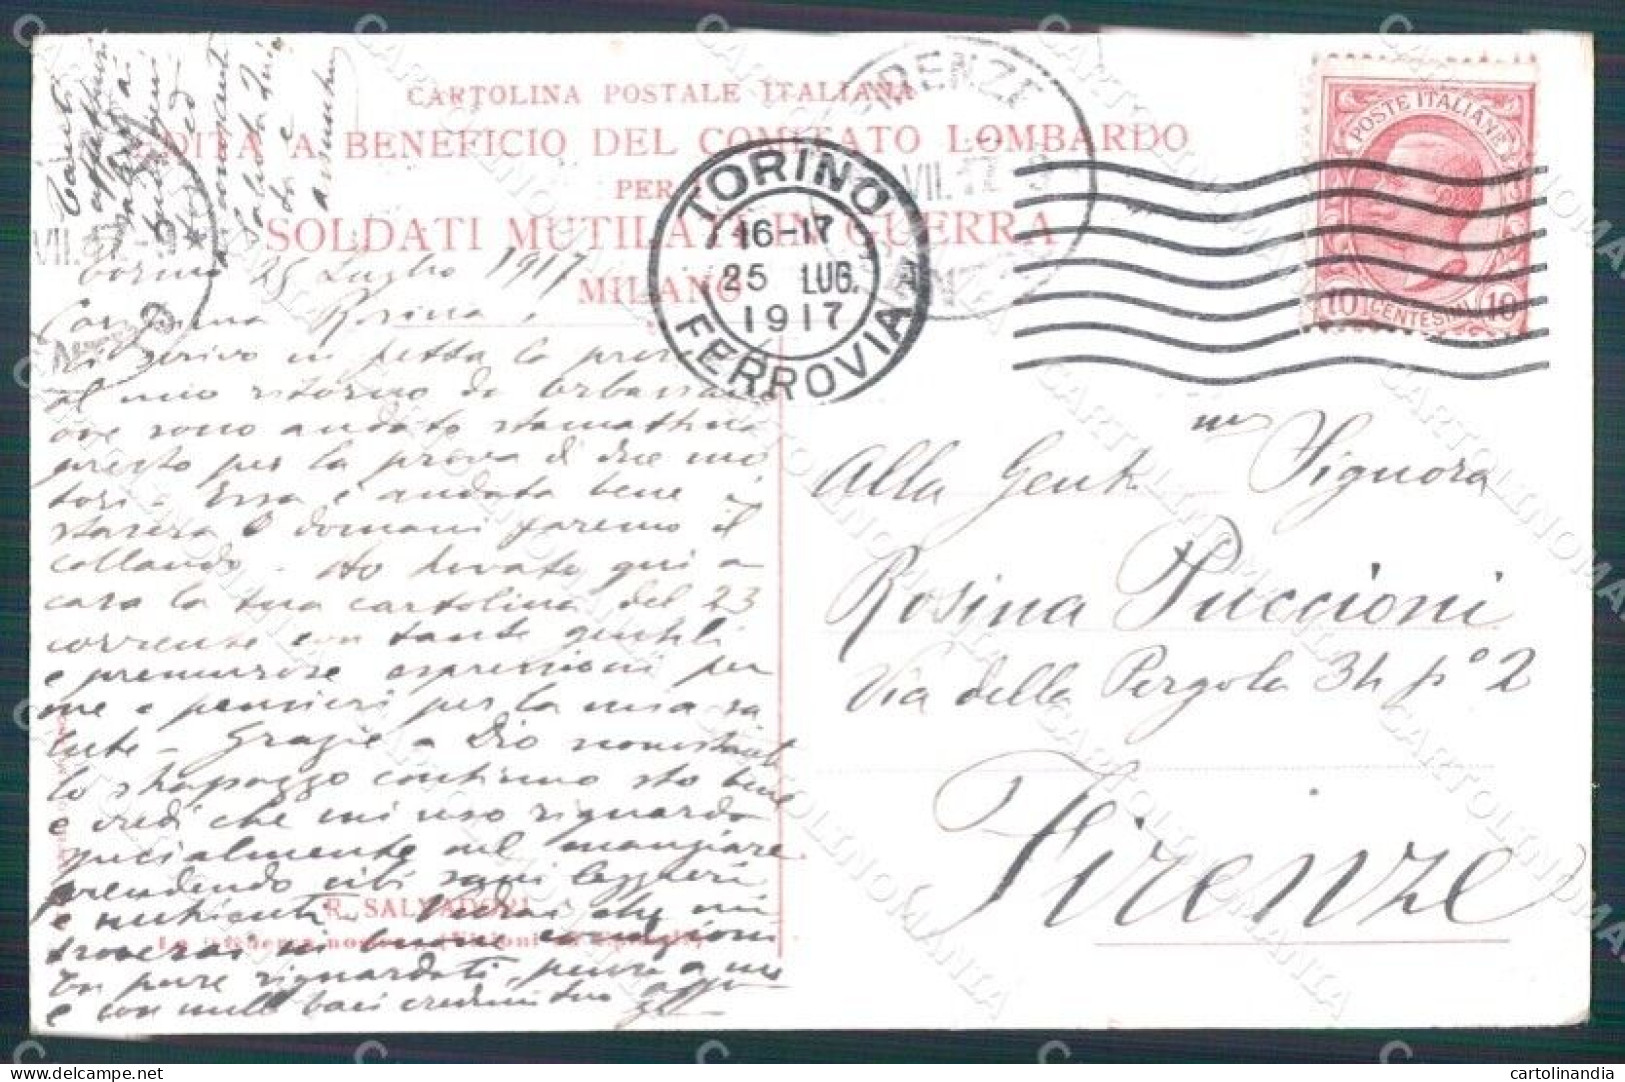 CARTOLINA POSTALE ITALIANA
DITA A BENEFICIO DEL COMITATO LOMBARDO
PER
SOLDATI MUTILATI IN GUERRA
MILANO
TORINO
16-17
25 LUG.
1917
FERROVIA
FIRENZE
VII. 17
POSTE ITALIANE
10 CENTESIMI 10
Torino 25 Luglio 1917
Carissima Rosina,
Ti scrivo in fretta la presente
al mio ritorno da Orbassano
ove sono andato stamattina
presto per la prova di due mo
tori. Essa è andata bene e
stasera o domani faremo il
collaudo. Ho trovato qui a
casa la tua cartolina del 23
corrente con tante gentili
e premurose espressioni per
me e pensieri per la mia sa
lute. Grazie a Dio nonostante
lo strapazzo continuo sto bene
e credi che mi uso riguardo
specialmente nel mangiare
prendendo cibi sani leggeri
e nutrienti. Vedrai che mi
troverai in buone condizioni
Tu pure riguardati, pensa a me
e con mille baci credimi tuo
R. SALVADORI
Alla Gent.ma Signora
Rosina Puccioni
Via della Pergola 34 p° 2
Firenze
CARTOLINOMANIA
cartolinandia